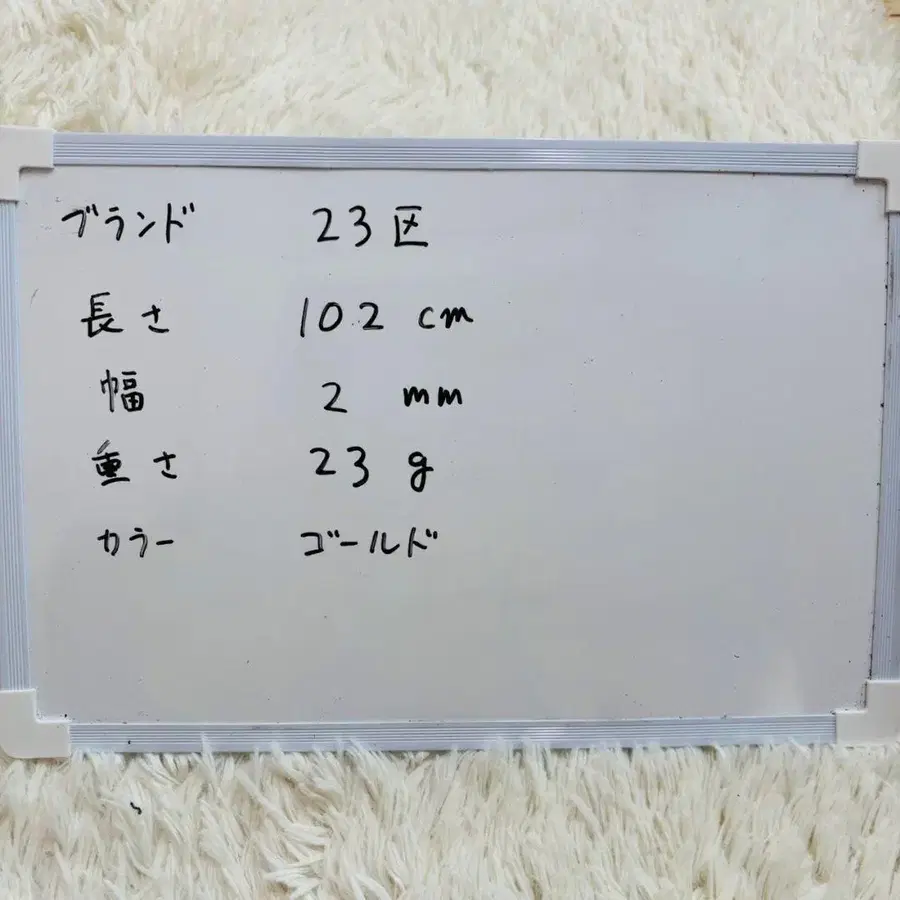 ブランド 23区
長さ 102 cm
幅 2 mm
重さ 23 g
カラー ゴールド